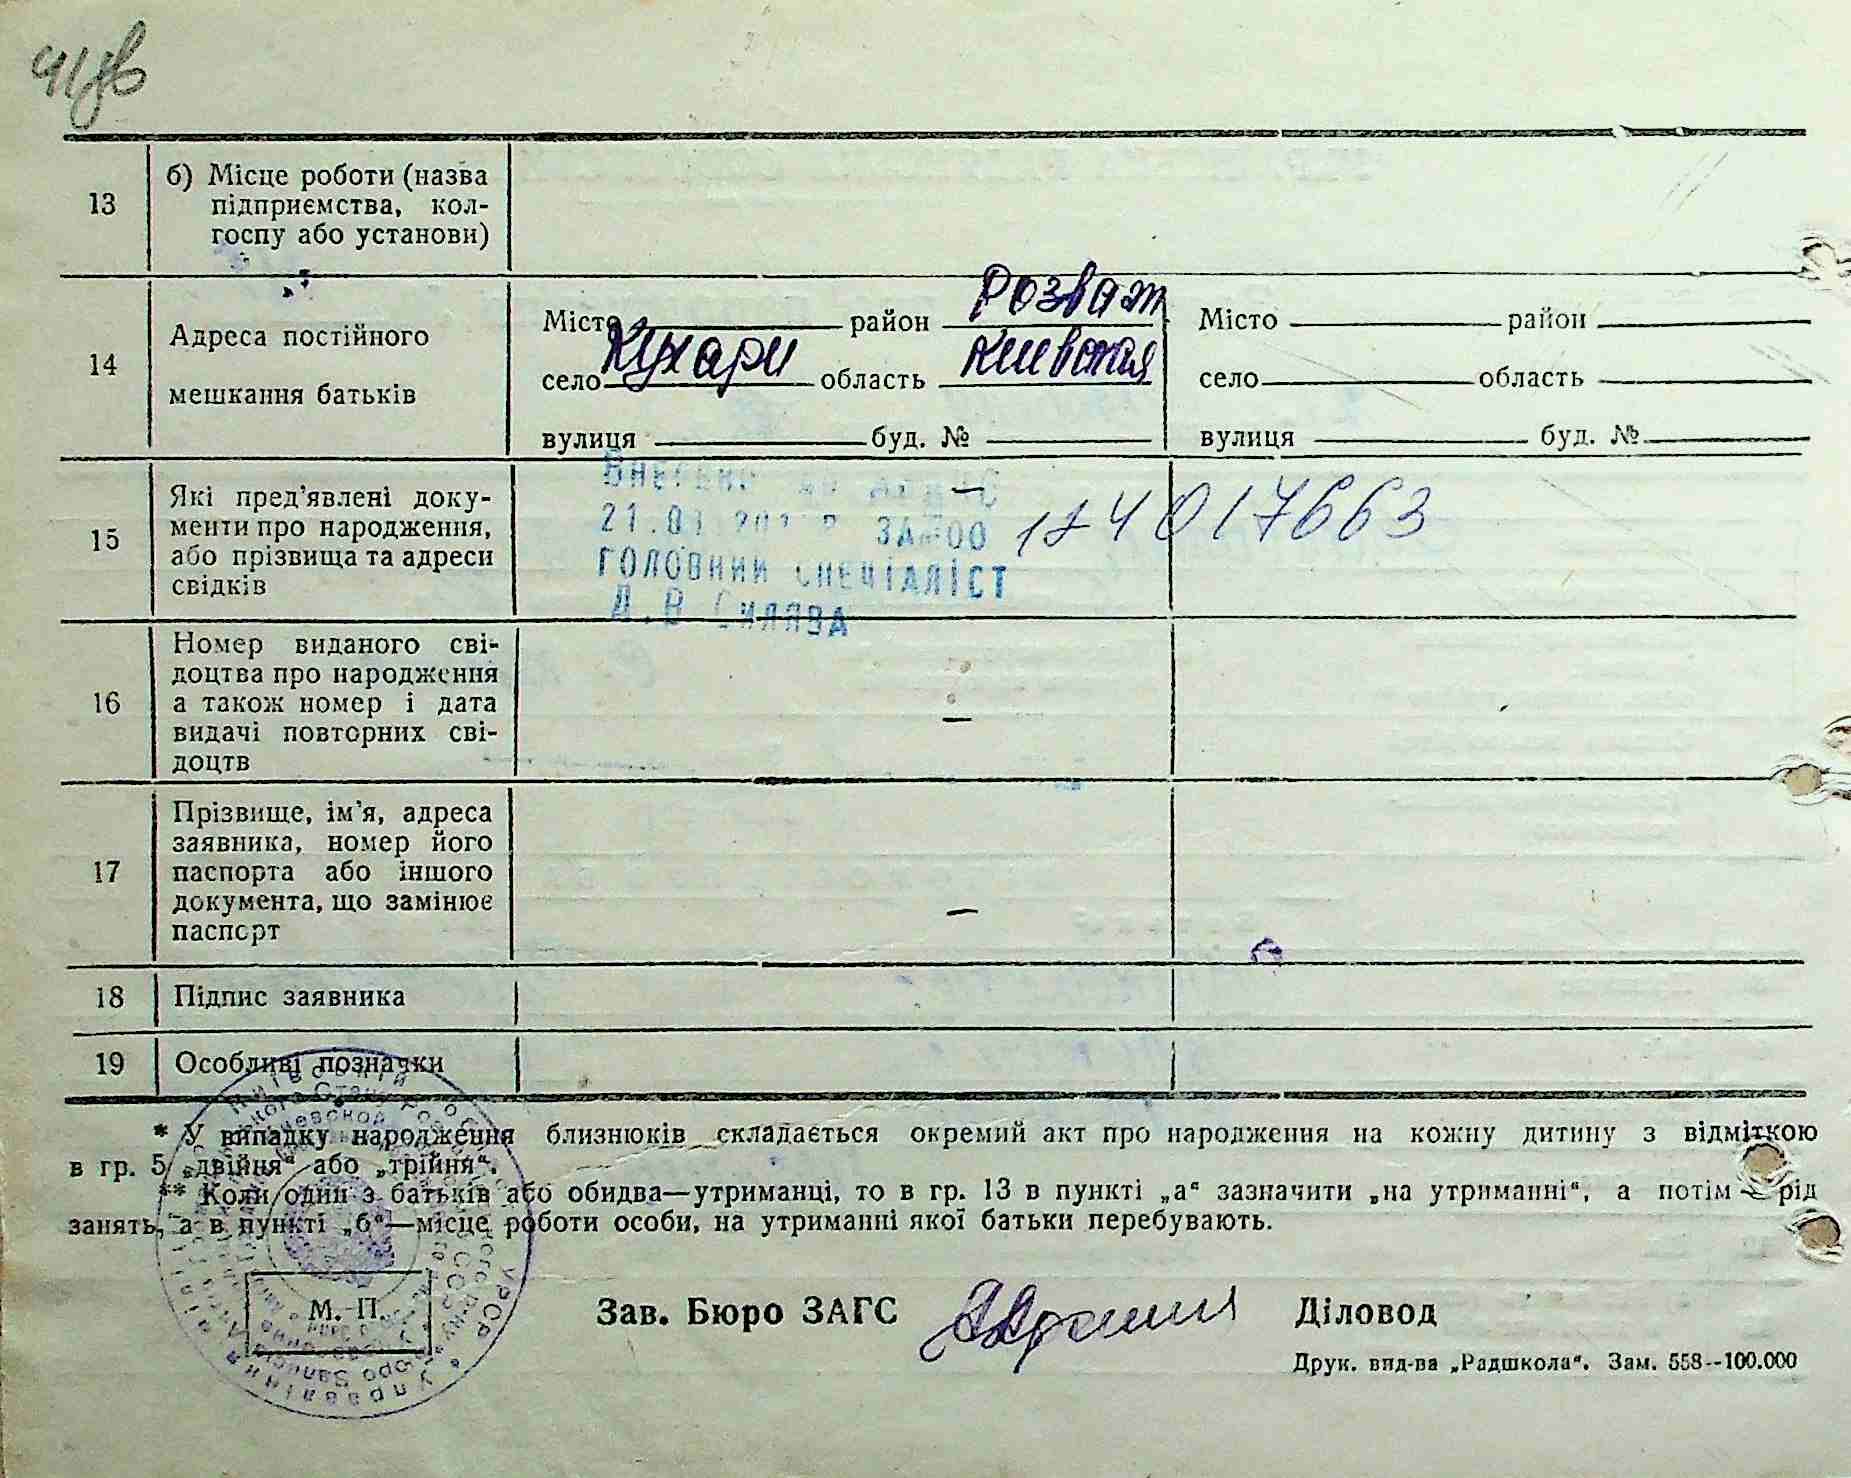 13
б) Місце роботи (назва
підприємства, кол-
госпу або установи)
14
Адреса постійного
мешкання батьків
Місто район Розваж
село Кухари область Киевская
вулиця буд. №
Місто район
село область
вулиця буд. №
15
Які пред'явлені доку-
менти про народження,
або прізвища та адреси
свідків
Внесено до —
21.01 ЗА №00 174017663
ГОЛОВНИЙ СПЕЦІАЛІСТ
А.В СИЛЯВА
16
Номер виданого сві-
доцтва про народження
а також номер і дата
видачі повторних сві-
доцтв
—
17
Прізвище, ім'я, адреса
заявника, номер його
паспорта або іншого
документа, що замінює
паспорт
—
18 Підпис заявника
19 Особливі позначки
* У випадку народження близнюків складається окремий акт про народження на кожну дитину з відміткою
в гр. 5 „двійня“ або „трійня“.
** Коли один з батьків або обидва—утриманці, то в гр. 13 в пункті „а“ зазначити „на утриманні“, а потім — рід
занять, а в пункті „б“—місце роботи особи, на утриманні якої батьки перебувають.
М. П.
Зав. Бюро ЗАГС Діловод
Друк. вид-ва „Радшкола“. Зам. 558--100.000